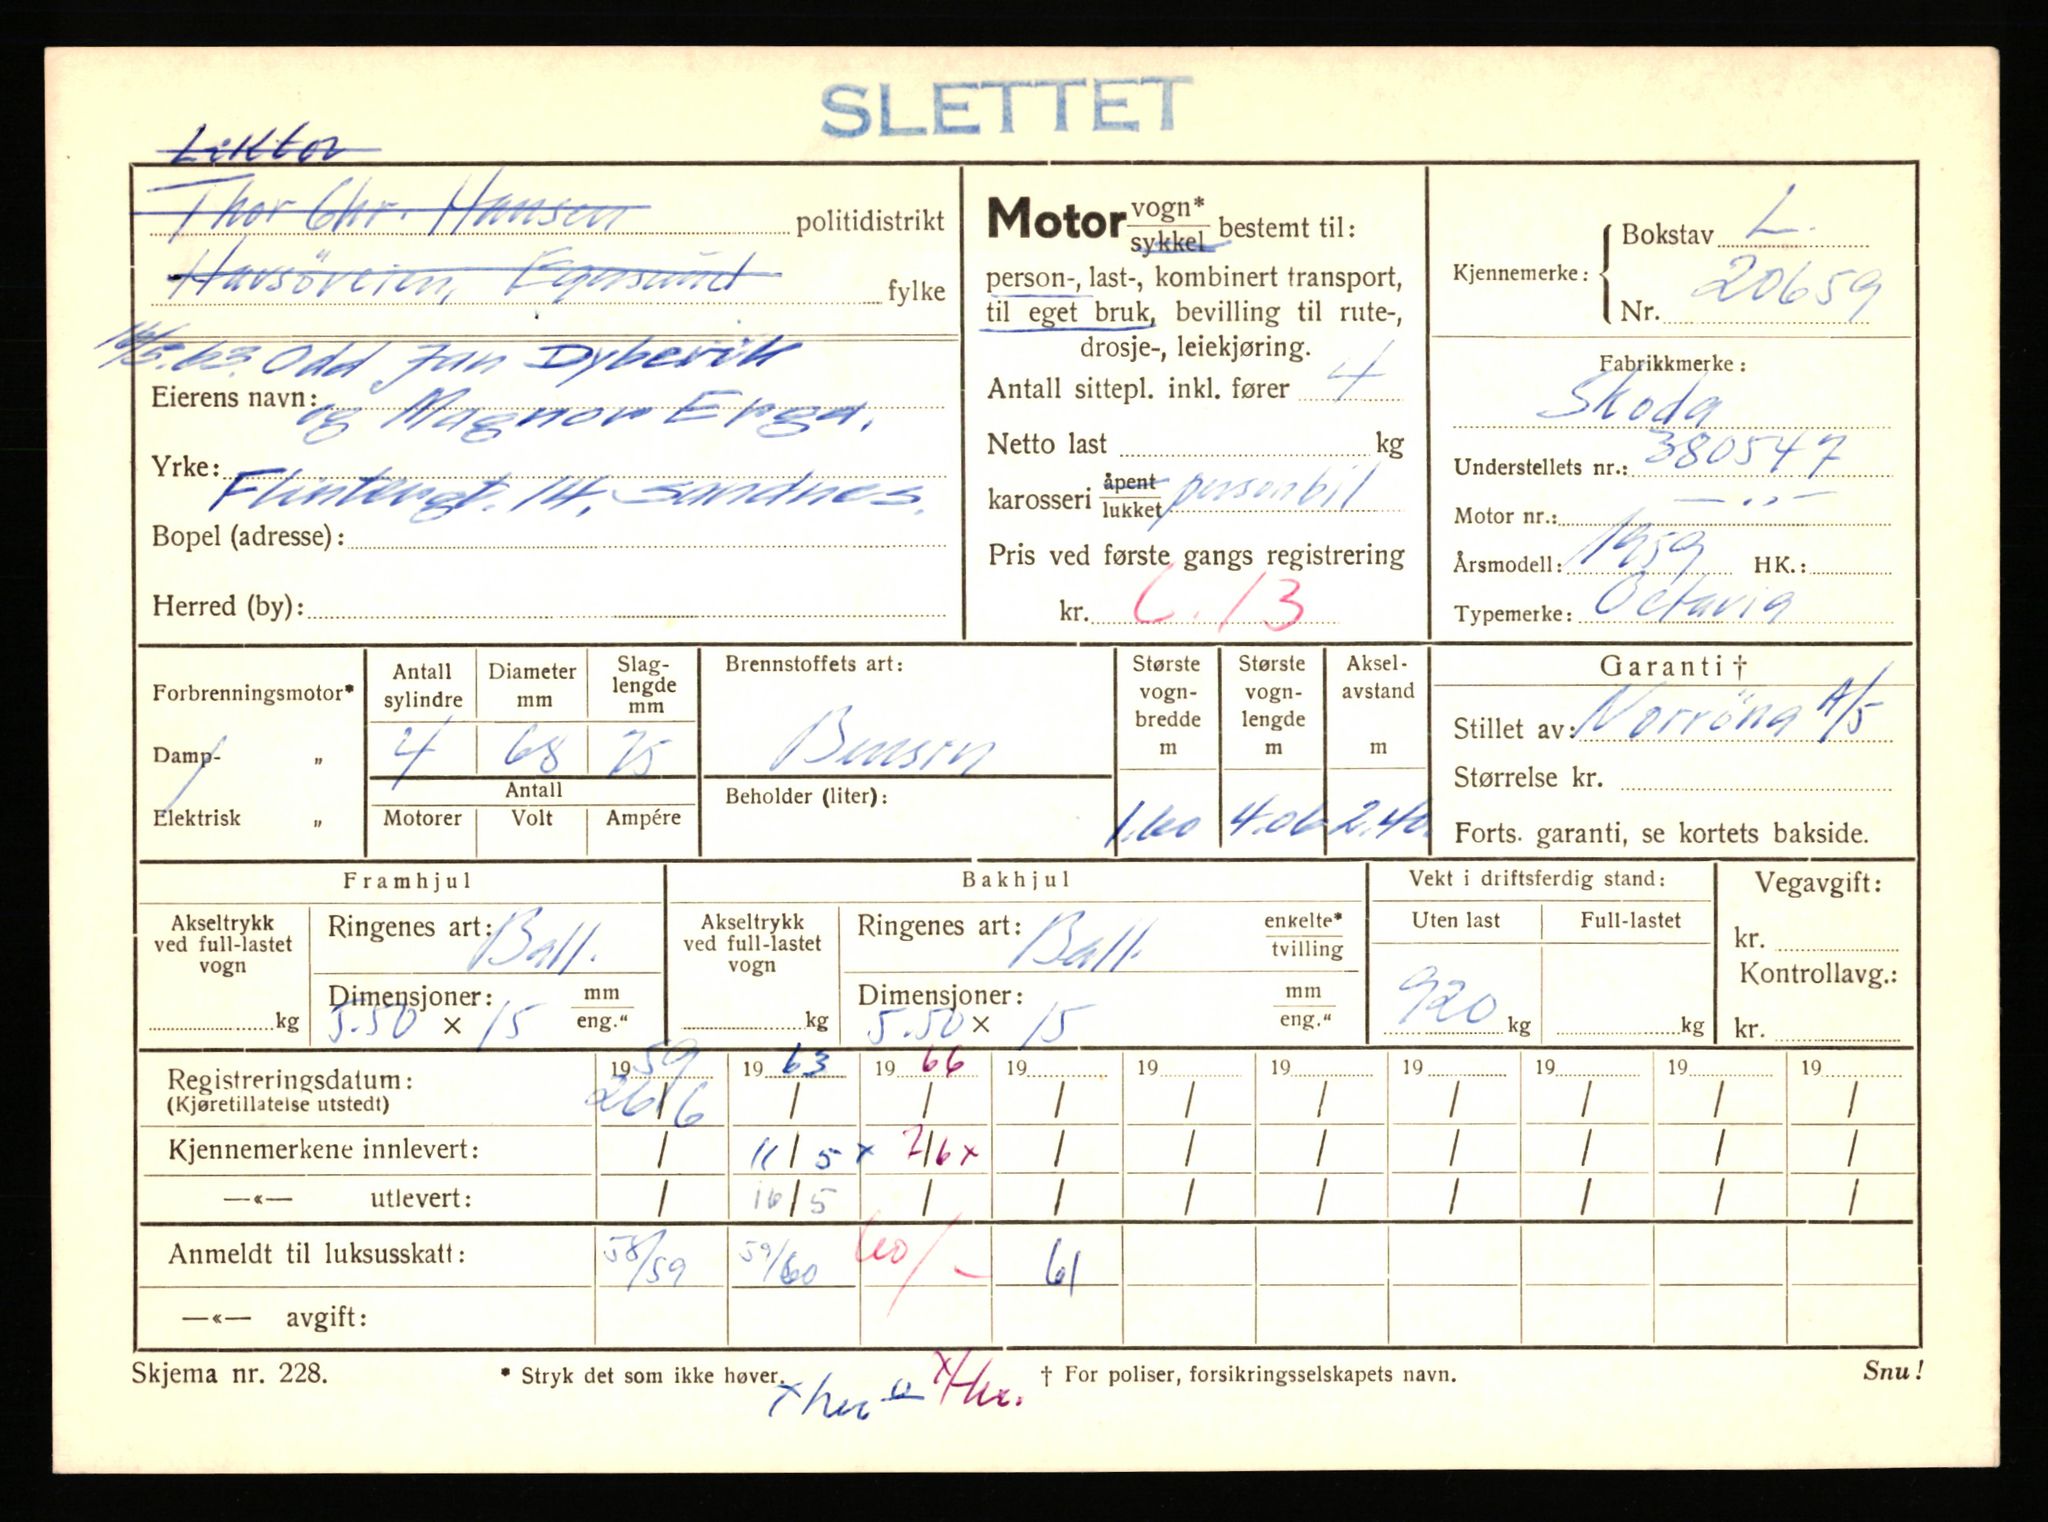 SLETTET
Lektor
Thor Chr. Hansen politidistrikt
Havsöveien, Egersund fylke
16/5.63. Odd Jan Dybevik
Eierens navn:
og Magnor Erga.
Yrke:
Flintergt. 14, Sandnes.
Bopel (adresse):
Herred (by):
Motor vogn* sykkel bestemt til:
person-, last-, kombinert transport,
til eget bruk, bevilling til rute-,
drosje-, leiekjøring.
Antall sittepl. inkl. fører 4
Netto last kg
karosseri åpent lukket personbil
Pris ved første gangs registrering
kr. 6.13
Kjennemerke: Bokstav L.
Nr. 20659
Fabrikkmerke:
Skoda
Understellets nr.: 380547
Motor nr.: — „ —
Årsmodell: 1959 HK.:
Typemerke: Octavia
Forbrenningsmotor*
Damp- „
Elektrisk „
Antall sylindre Diameter mm Slag-lengde mm
4 68 75
Antall
Motorer Volt Ampére
Brennstoffets art:
Bensin
Beholder (liter):
Største vogn-bredde m Største vogn-lengde m Aksel-avstand m
1.60 4.06 2.40
Garanti †
Stillet av: Norröna A/S
Størrelse kr.
Forts. garanti, se kortets bakside.
Framhjul
Akseltrykk ved full-lastet vogn
kg
Ringenes art: Ball.
Dimensjoner: mm eng."
5.50 × 15
Bakhjul
Akseltrykk ved full-lastet vogn
kg
Ringenes art: Ball. enkelte* tvilling
Dimensjoner: mm eng."
5.50 × 15
Vekt i driftsferdig stand:
Uten last Full-lastet
920 kg kg
Vegavgift:
kr.
Kontrollavg.:
kr.
Registreringsdatum: 1959 1963 1966 19 19 19 19 19 19 19
(Kjøretillatelse utstedt) 26/6 / / / / / / / / /
Kjennemerkene innlevert: / 11/5 x 2/6 x / / / / / / /
—«— utlevert: / 16/5 / / / / / / / /
Anmeldt til luksusskatt: 58/59 59/60 60/— 61
—«— avgift:
Skjema nr. 228. * Stryk det som ikke høver. † For poliser, forsikringsselskapets navn. Snu!